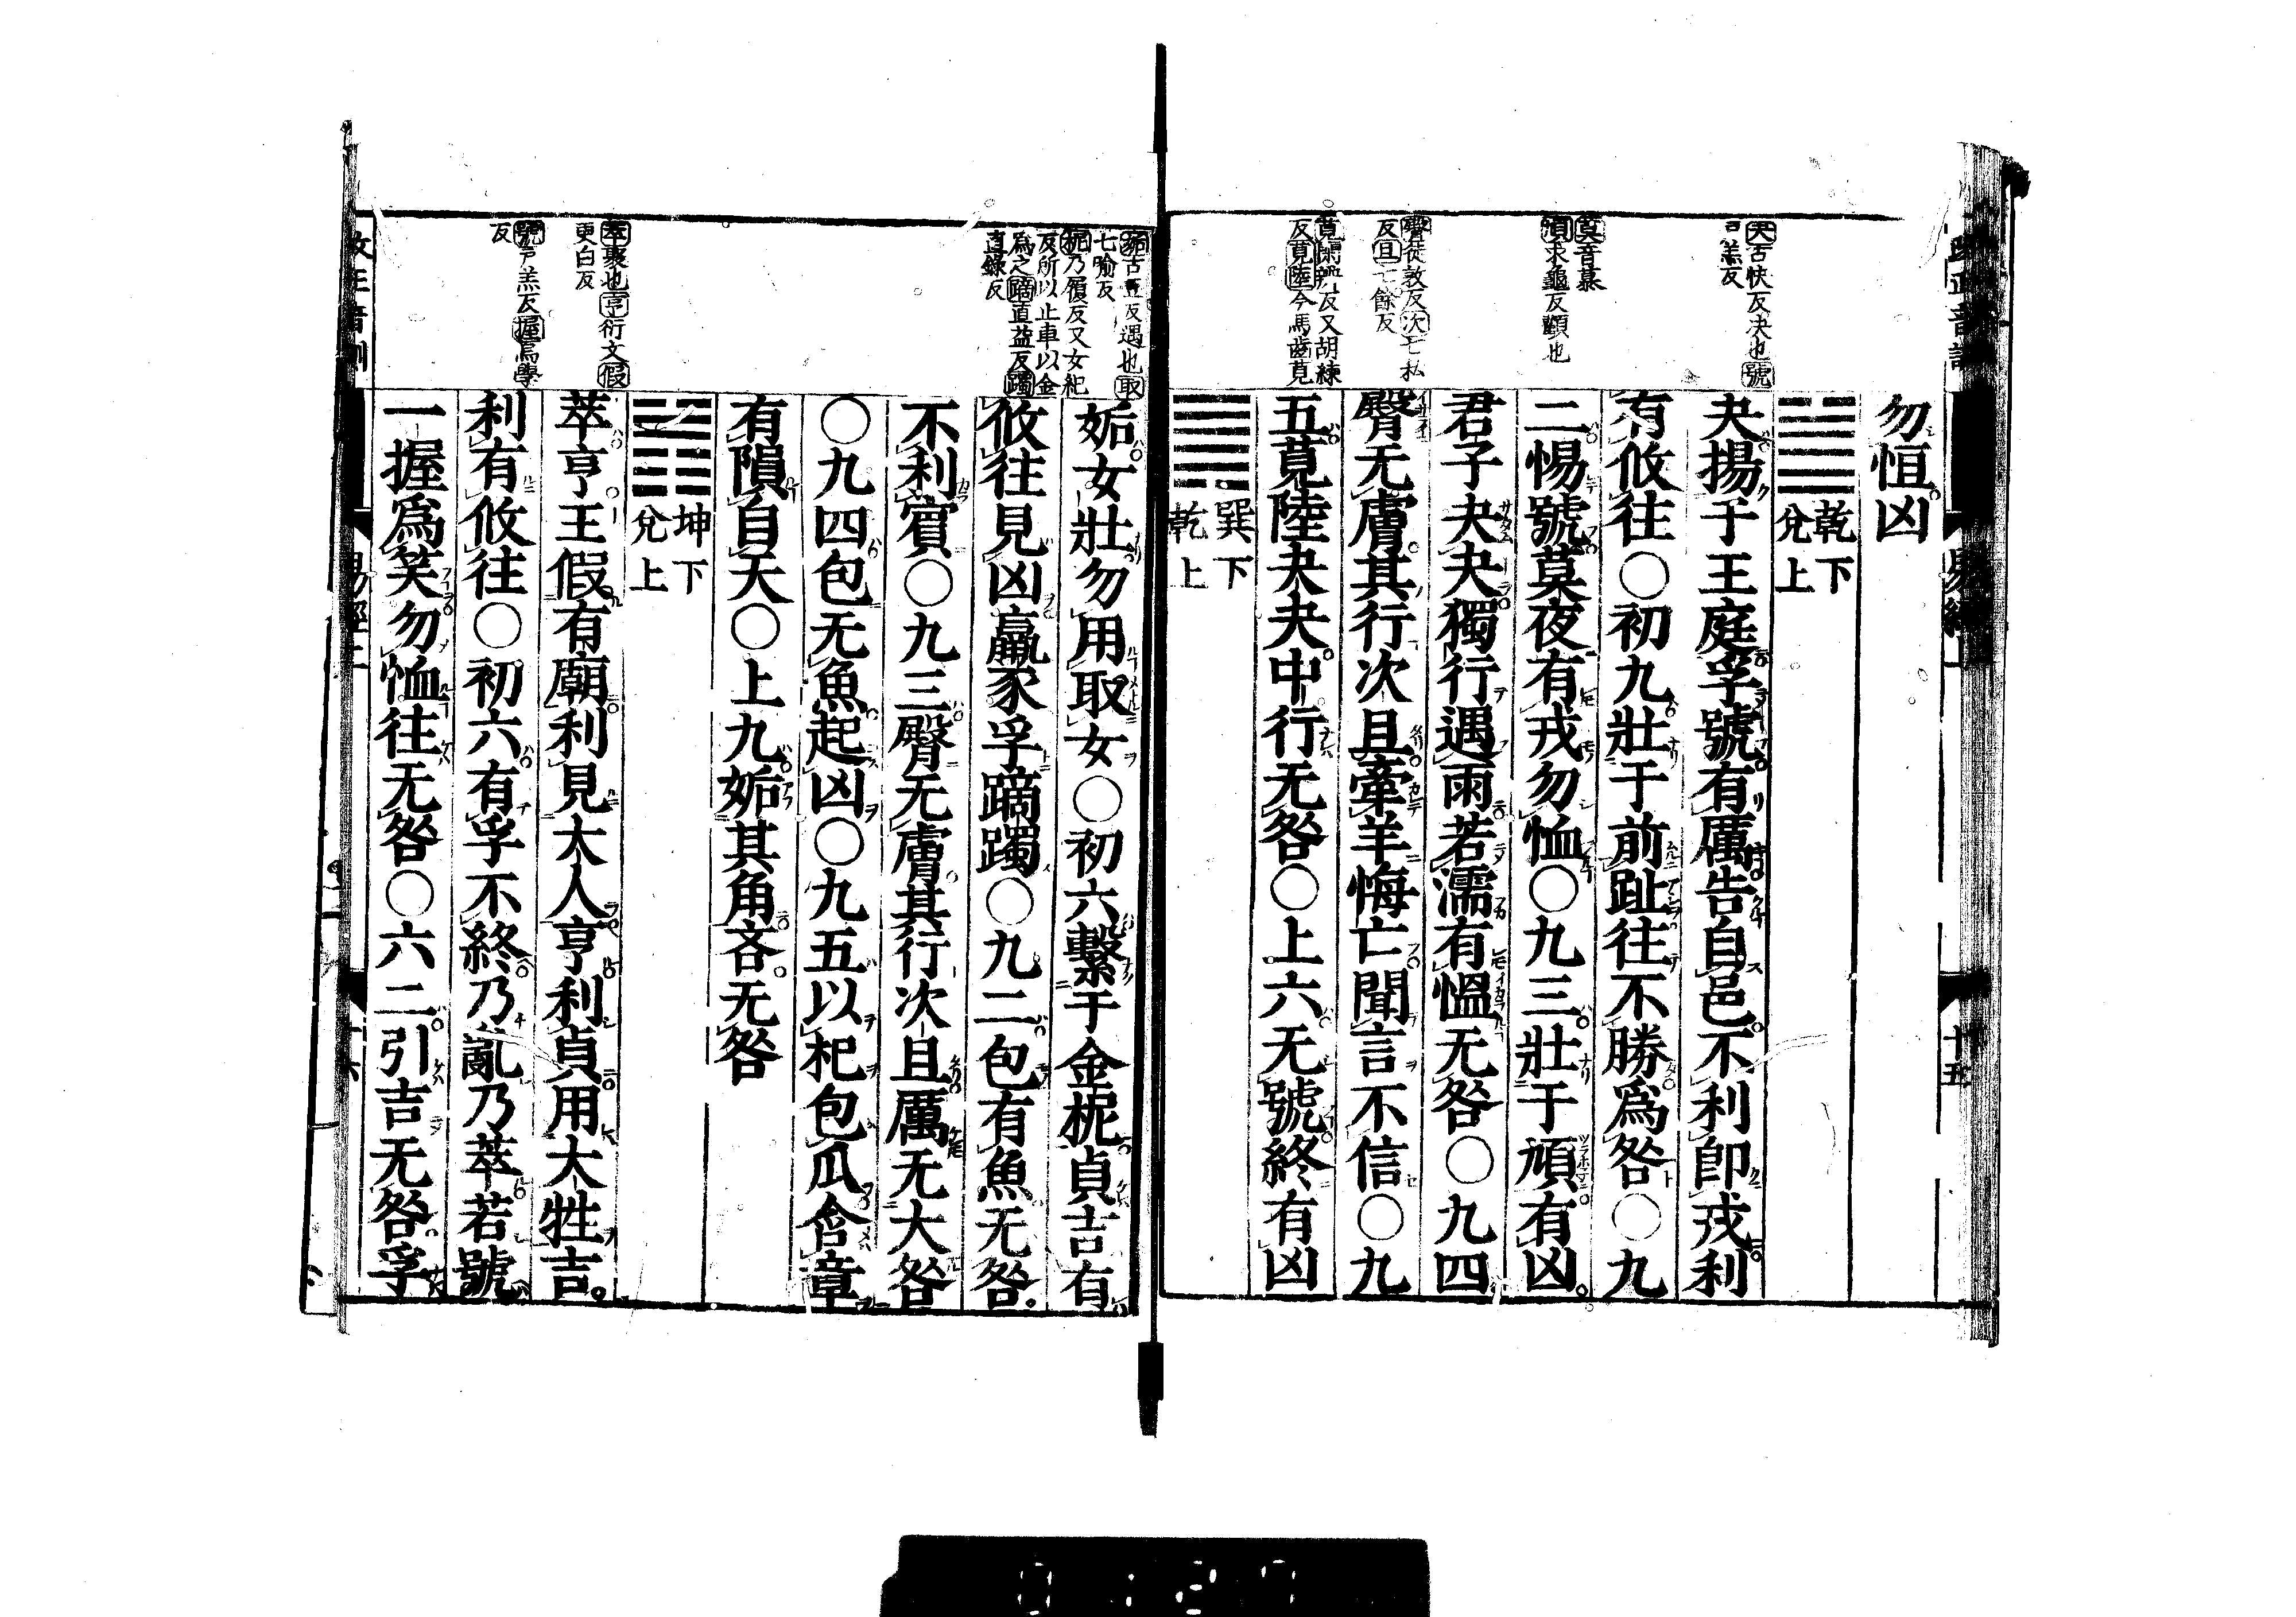 夬古快反决也號
戸羔反
莫音慕
頄求龜反顴也
臀徒敦反次七私
反且七餘反
莧閑辨反又胡練
反莧陸今馬齒莧
勿恒凶
乾下
兌上
夬揚于王庭孚號有厲告自邑不利卽戎利
有攸往〇初九壯于前趾往不勝爲咎〇九
二惕號莫夜有戎勿恤〇九三壯于頄有凶
君子夬夬獨行遇雨若濡有慍无咎〇九四
臀无膚其行次且牽羊悔亡聞言不信〇九
五莧陸夬夬中行无咎〇上六无號終有凶
巽下
乾上
易經
十五
姤古豆反遇也取
七喻反
柅乃履反又女紀
反所以止車以金
為之蹢直益反躅
直錄反
萃聚也亨衍文假
更白反
號戸羔反握烏學
反
姤女壯勿用取女〇初六繫于金柅貞吉有
攸往見凶羸豕孚蹢躅〇九二包有魚无咎
不利賓〇九三臀无膚其行次且厲无大咎
〇九四包无魚起凶〇九五以杞包瓜含章
有隕自天〇上九姤其角吝无咎
坤下
兌上
萃亨王假有廟利見大人亨利貞用大牲吉
利有攸往〇初六有孚不終乃亂乃萃若號
一握爲笑勿恤往无咎〇六二引吉无咎孚
易經上
十六